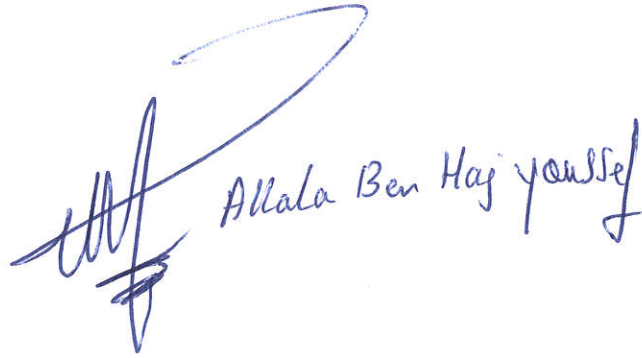 Allala Ben Haj youssef